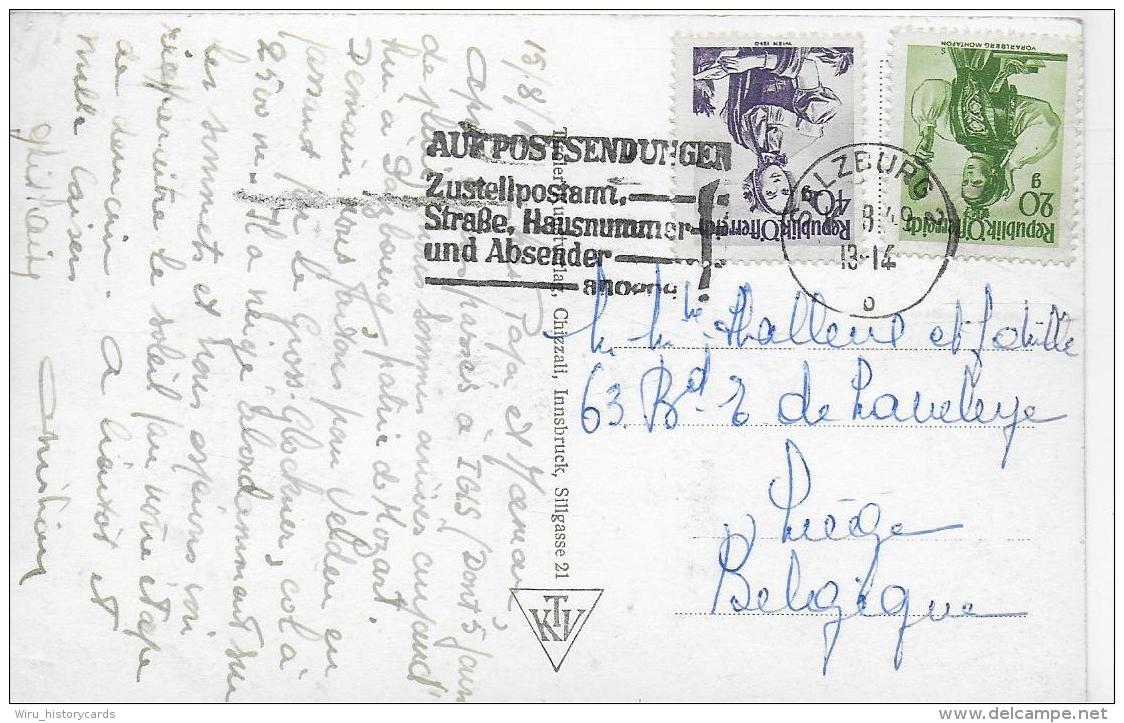 15/8/
Papa et Maman
passés à IGLS (Dont 5 jours
de pluie) nous sommes arrivés
à Salzbourg, patrie de Mozart.
Demain nous partons pour Velden en
passant par le Gross-glockner, col à
2500 m. Il a neigé abondamment sur
les sommets et nous espérons voir
réapparaître le soleil pour notre étape
de demain. A bientôt et
mille baisers
AUF POSTSENDUNGEN
Zustellpostamt,
Straße, Hausnummer
und Absender
angeben!
SALZBURG
13-14
WIEN 1840
40 g
Republik Österreich
VORARLBERG MONTAFON
20 g
Republik Österreich
Tiroler Kunstverlag, Chizzali, Innsbruck, Sillgasse 21
KTV
63 Bd E de Laveleye
Liège
Belgique
Wiru_historycards
www.delcampe.net